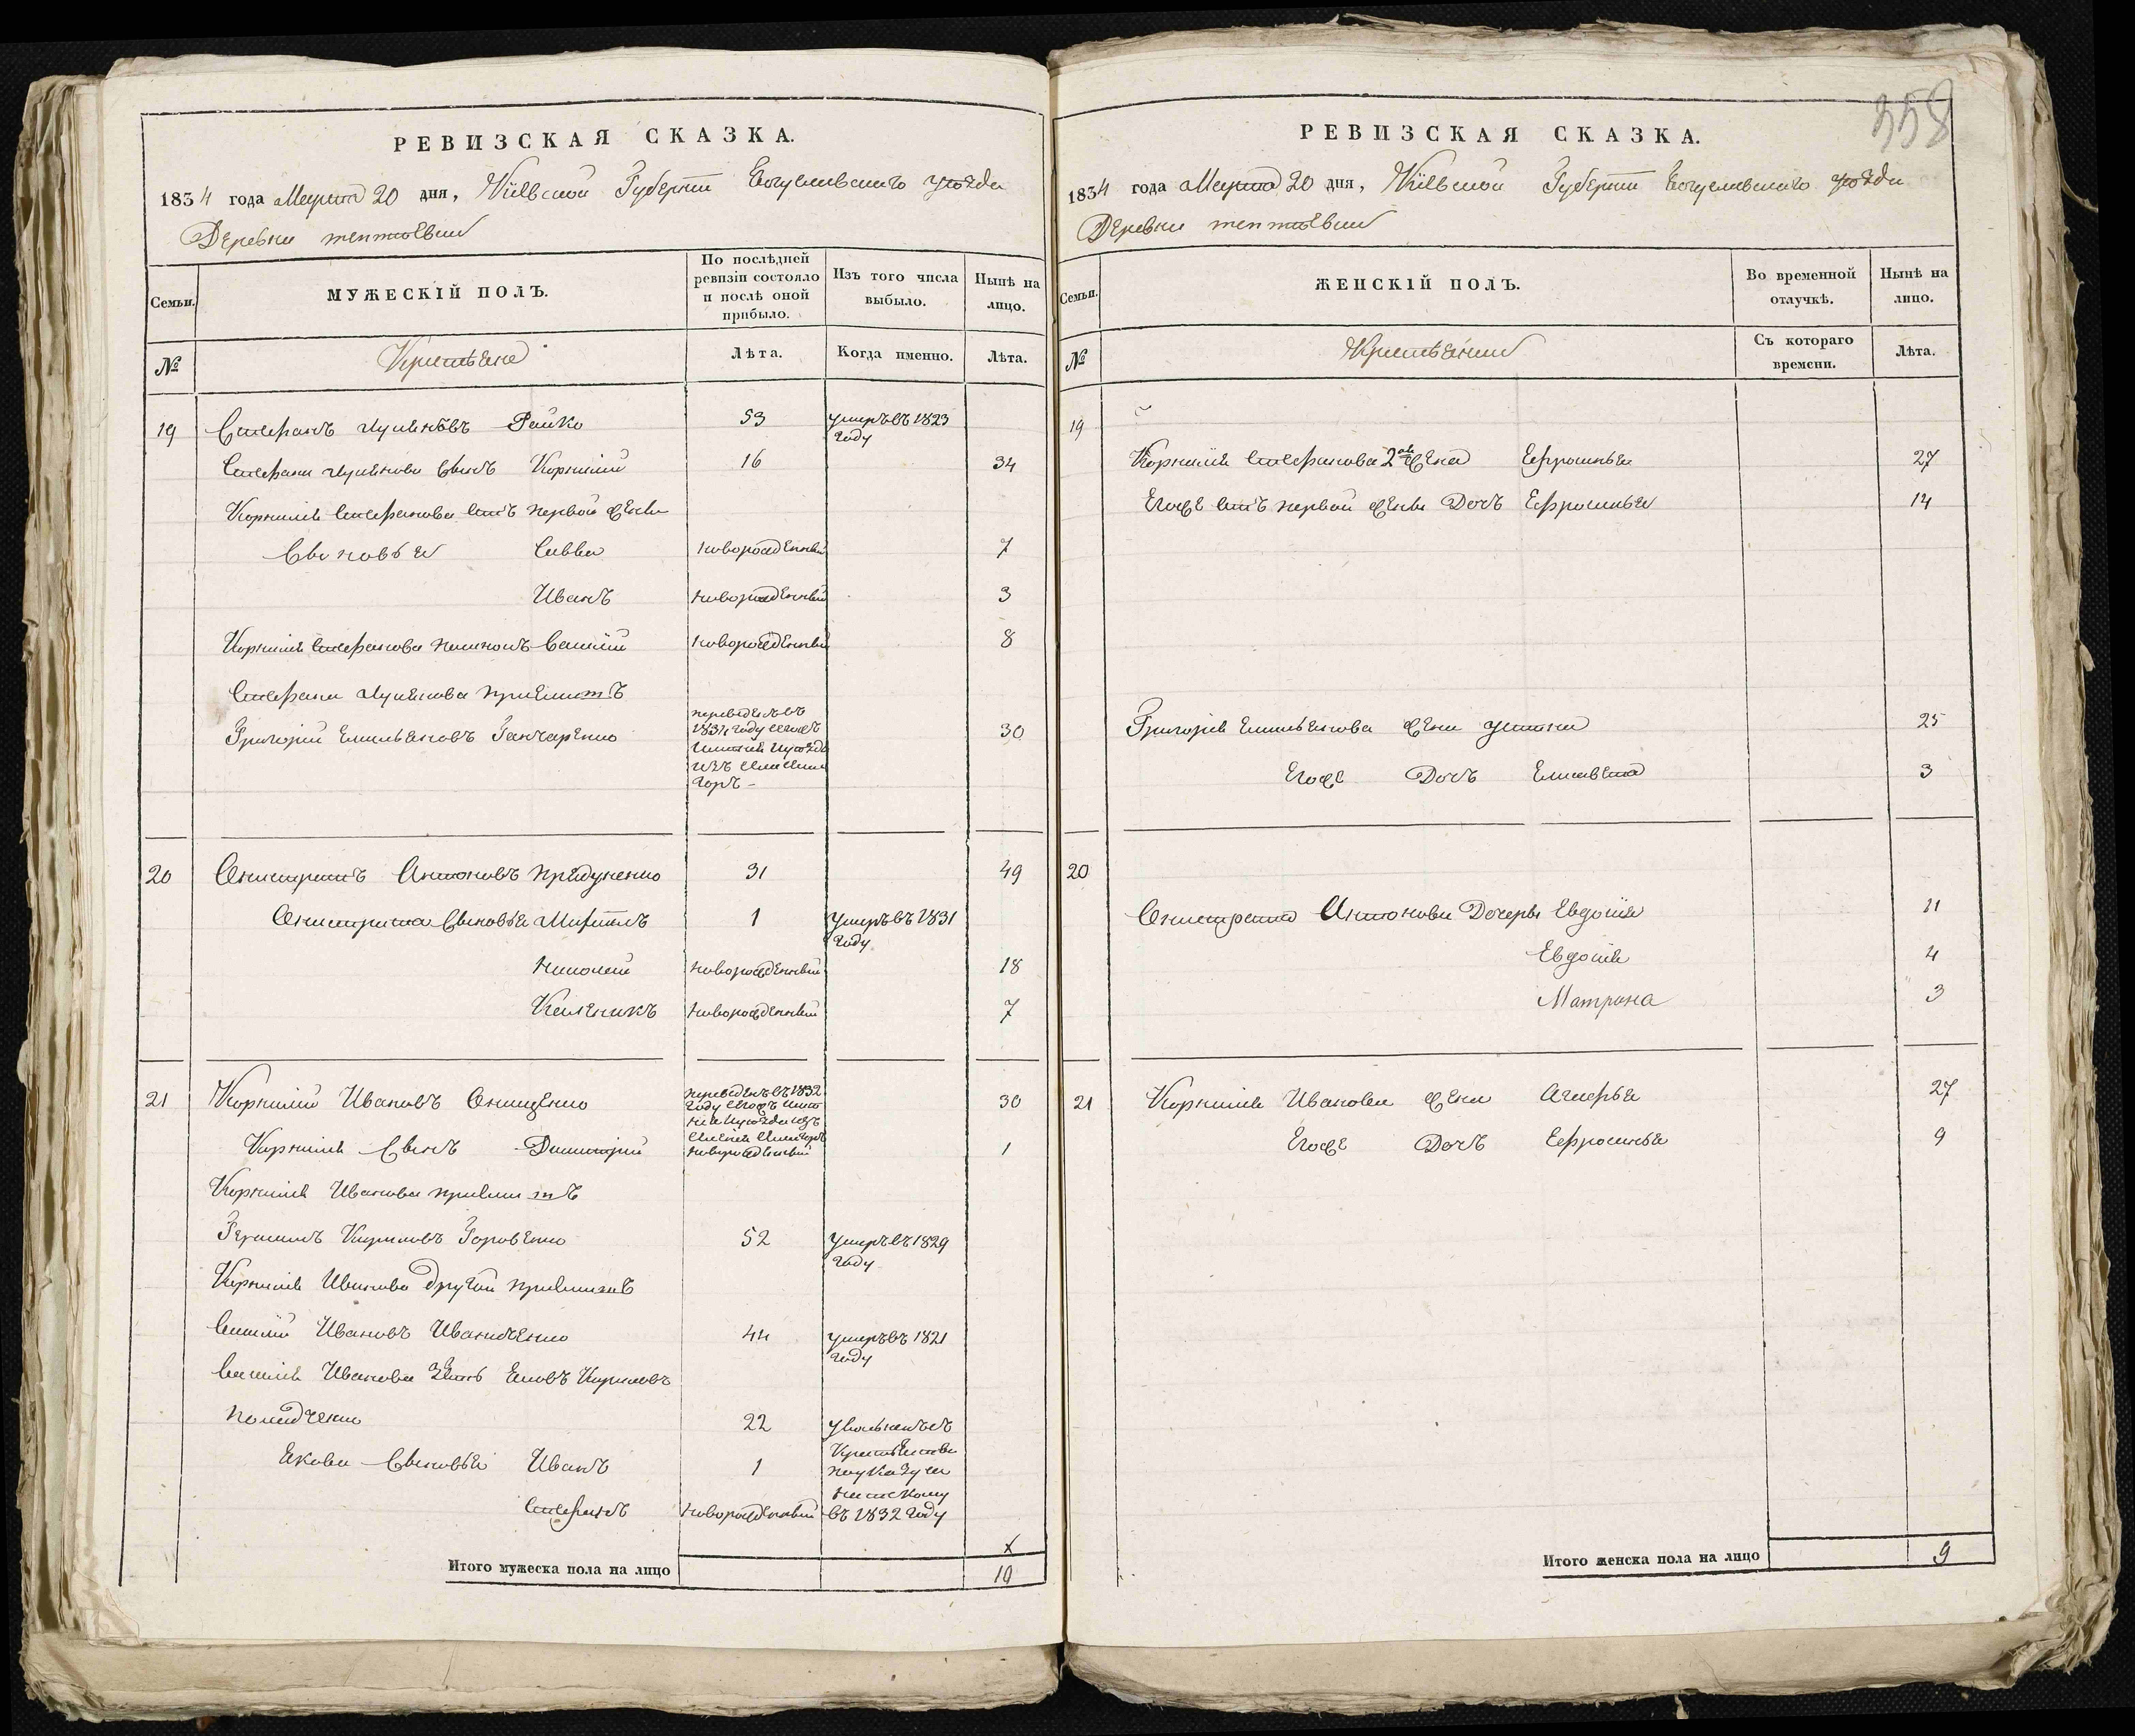 РЕВИЗСКАЯ СКАЗКА.
1834 года Марта 20 дня, Кіевской Губерніи Богуславскаго уезда
Деревни
Семьи.
МУЖЕСКІЙ ПОЛЪ.
По послѣдней ревизіи состояло и послѣ оной прибыло.
Изъ того числа выбыло.
Нынѣ на лицо.
№
Крестьяне
Лѣта.
Когда именно.
Лѣта.
19 Стефанъ Райко 53 умеръ въ 1823 году
Стефана сынъ Корнилій 16 34
Корнилія Стефанова отъ первой жены
Сыновья Савва новорожденный 7
Иванъ новорожденный 3
Корнилія Стефанова Василій новорожденный 8
Стефана приемышъ
Григорій Емельяновъ Ганчаренко переведенъ въ 1834 году 30
20 Онистратъ Антоновъ 31 49
Онистрата Сыновья 1 умеръ въ 1831 году
Николай новорожденный 18
новорожденный 7
21 Корнилій Ивановъ Онищенко переведенъ въ 1832 году 30
Корнилія Сынъ Димитрій новорожденный 1
Корнилія Иванова приемышъ
Кириловъ 52 умеръ въ 1829 году
Корнилія Иванова другой приемышъ
Василій Ивановъ Иванченко 44 умеръ въ 1821 году
Василія Иванова Зять Яковъ Кириловъ
22
Якова Сыновья Иванъ 1
Стефанъ новорожденный въ 1832 году
х
Итого мужеска пола на лицо 10
358
РЕВИЗСКАЯ СКАЗКА.
1834 года Марта 20 дня, Кіевской Губерніи Богуславскаго уезда
Деревни
Семьи.
ЖЕНСКІЙ ПОЛЪ.
Во временной отлучкѣ.
Нынѣ на лицо.
№
Крестьянки
Съ котораго времени.
Лѣта.
19
Корнилія Стефанова 2ая Жена Ефросинья 27
Егоже отъ первой жены Дочь Ефросинья 14
Григорія Емельянова жена Устина 25
Егоже Дочь Елисавета 3
20
Онистрата Антонова Дочери Евдокія 11
Евдокія 4
Матрона 3
21 Корнилія Иванова жена Агафья 27
Егоже Дочь Ефросинья 9
Итого женска пола на лицо 9